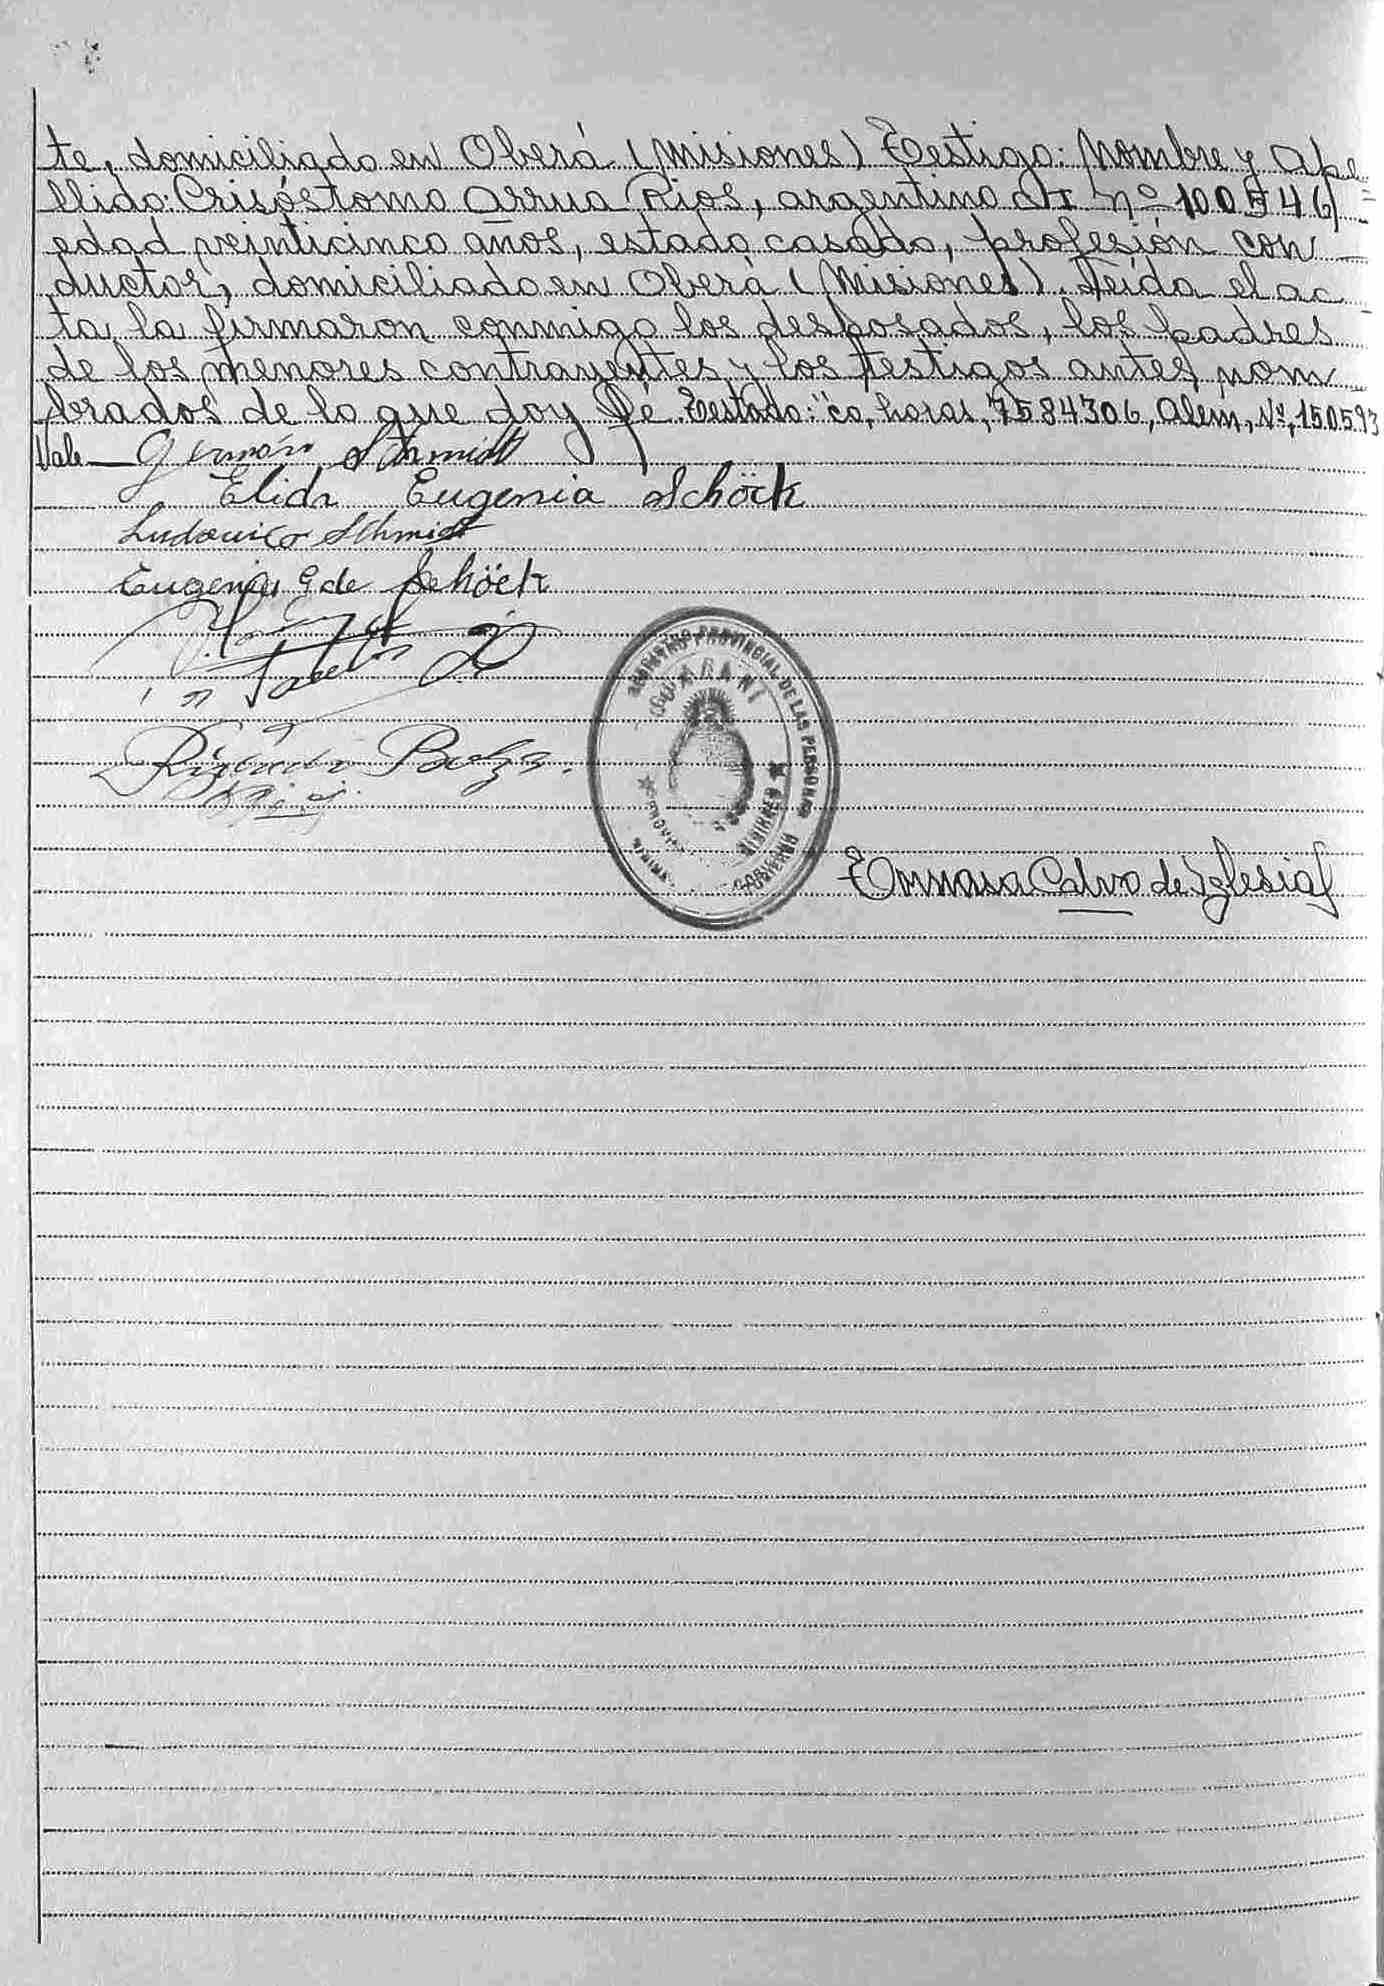 te, domiciliado en Oberá (Misiones) Testigo: Nombre y Ape
llido: Crisóstomo Arrua Rios, argentino CI Nº 100546
edad veinticinco años, estado casado, profesión con
ductor, domiciliado en Oberá (Misiones). Leída el ac
ta la firmaron conmigo los desposados, los padres
de los menores contrayentes y los testigos antes nom
brados de lo que doy fé. Testado: "co, horas, 7584306, Alem, Nº, 150593
Vale
Germán Schmidt
Elida Eugenia Schöck
Ludovico Schmidt
Eugenia G de Schöck
REGISTRO PROVINCIAL DE LAS PERSONAS
GUARANI
MISIONES
GOBIERNO
Tomasa Calvo de Iglesias